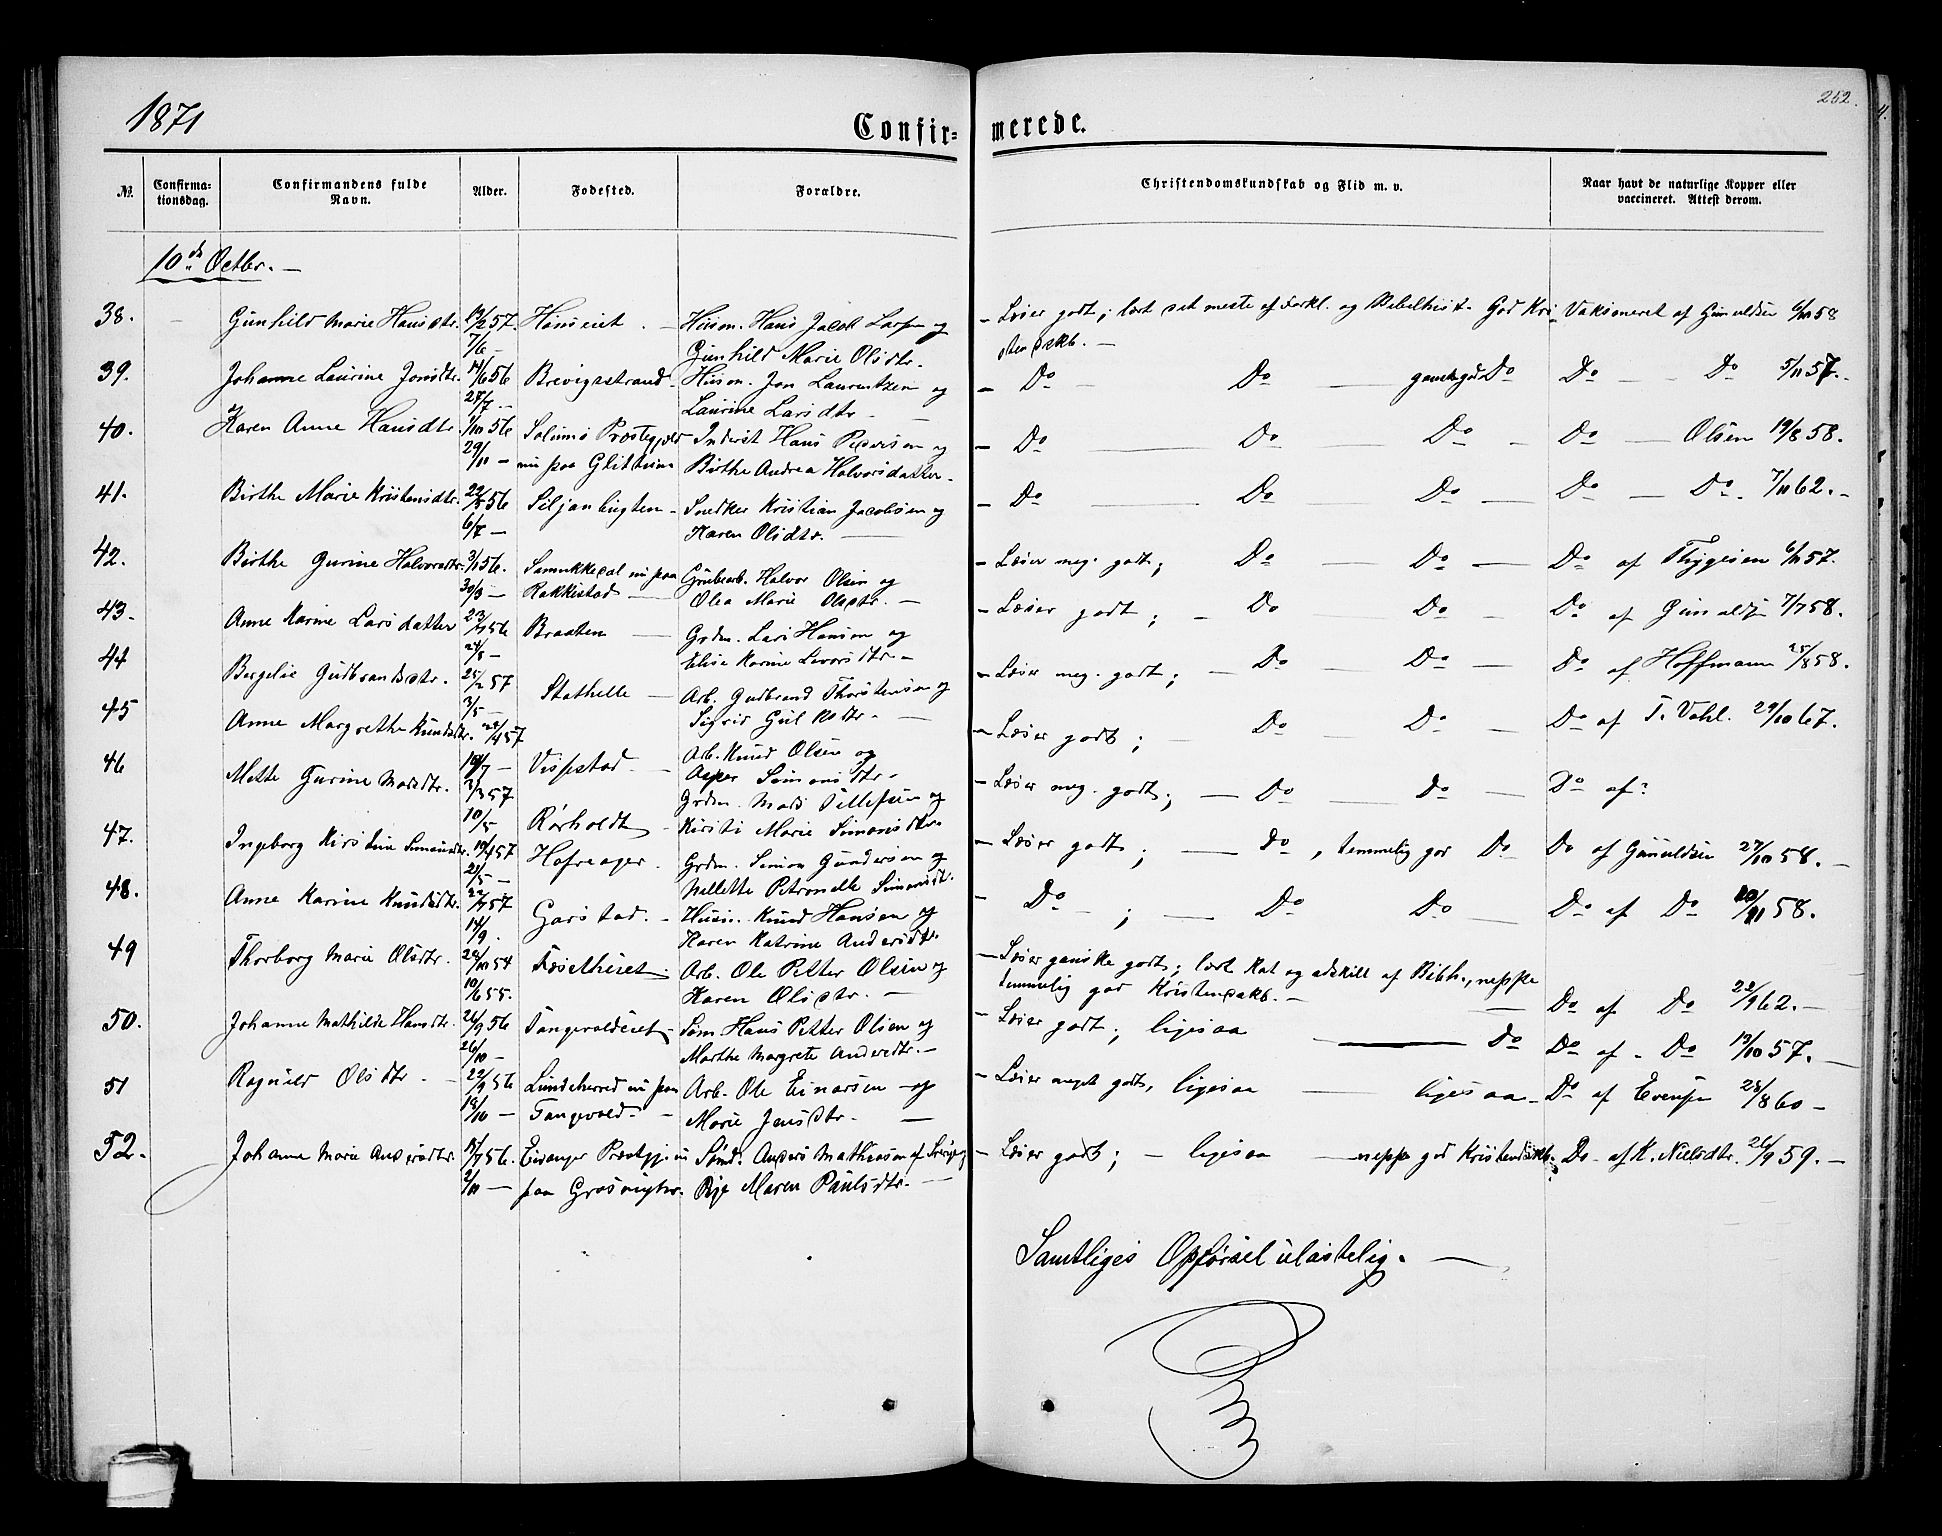 1871
252.
Confir- merede.
No.
Confirma-
tionsdag.
Confirmandens fulde
Navn.
Alder.
Fødested.
Forældre.
Christendomskundskab og Flid m. v.
Naar havt de naturlige Kopper eller
vaccineret. Attest derom.
10de Octbr. —
38. Gunhild Marie Hansdtr. 19/2 57. Hanseiet. — Husm. Hans Jacob Larsen og — Læser godt; lært det meste af Forkl. og Bibelhist. God Kri- Vaksineret af Gunuldsen 6/10 58
7/6 — Gunhild Marie Olsdtr. stendskb. —
39. Johanne Laurine Jonsdtr. 14/6 56 Brevigsstrand — Husm. Jon Laurentzen og — Do — Do — ganske god Do Do — Do 5/11 57. —
27/7 — Laurine Larsdtr. —
40. Karen Anne Hansdtr. 1/10 56 Solums Præstegjeld Inderst Hans Pedersen og — Do — Do — Do — Do — Olsen 19/8 58.
29/11 — nu paa Birthe Andrea Halvorsdatter.
41. Birthe Marie Kristensdtr. 22/5 56 Snedker Kristian Jacobsen og — Do — Do — Do — Do — Do. 7/10 62. —
6/7 — Karen Olsdtr. —
42. Birthe Gurine Halvorsdtr. 3/1 56. nu paa Grubearb. Halvor Olsen og — Læser meg. godt; Do — Do — Do af Thygesen 6/10 57.
30/3 — Rakkestad — Olea Marie Olsdtr. —
43. Anne Karine Larsdatter 23/7 56 Braaten — Grdm. Lars Hansen og — Læser godt; — Do — Do — Do af Gunuldsen 7/7 58.
24/8 — Elise Karine Livorsdtr. —
44 Gudbrandsdtr. 25/2 57 Stathelle — Arb. Gudbrand Thorstensen og — Læser meg. godt; — Do — Do — Do af Hoffmann 25/8 58.
3/5 — Sigrid —
45 Anne Margrethe Knudsdtr. 22/4 57 Vissestad — Arb. Knud Olsen og — Læser godt; — Do — Do — Do af T. Vahl. 29/10 67.
19/7 — Asper Simonsdtr. —
46 Mette Gurine Madsdtr. 3/3 57 Rørholdt — Grdm. Mads Tellefsen og — Læser meg. godt; — Do — Do — Do af?
10/5 Kirsti Marie Simonsdtr.
47. Ingeborg Kirstine Simonsdtr. 19/4 57 Hafsager. Grdm. Simon Gundersen og — Læser godt; — Do, temmelig god Do Do af Gunuldsen 27/10 58. —
21/5 — Nellette Petronelle Simonsdt.
48. Anne Karine Knudsdtr. 22/7 57 Garstad. — Husm. Knud Hansen og — Do —; — Do Do — Do af Do 10/11 58.
14/9. Karen Katrine Andersdtr.
49 Thorborg Marie Olsdtr. 28/10 54 Arb. Ole Petter Olsen og — Læser ganske godt; lært Kat og adskill. af Bibh., neppe
10/6 55. Karen Olsdtr. — temmelig god Kristendskb. — — Do af Do 22/9 62. —
50. Johanne Mathilde Hansdtr. 26/9 56 Tangevaldeiet — Søm. Hans Petter Olsen og — Læser godt; ligesaa — Do Do af — Do 13/10 57. —
26/10 — Marthe Margrete Andersdtr. —
51 Ragnild Olsdtr. — 22/9 56 Lundeherred nu paa Arb. Ole Einarsen og — Læser meget godt, ligesaa — ligesaa — Do af Evensen 28/8 60 —
19/10 — Tangevald — Marie Jensdtr. —
52. Johanne Marie Andersdtr. 15/7 56. Eidanger Præstegj. nu Anders Mathiasen af — Læser godt; — ligesaa — neppe god Kristendskb. Do af K. Nielsdtr. 26/9 59. —
2/11 — paa Maren Paulsdtr. —
Samtliges Opførsel ulastelig. —